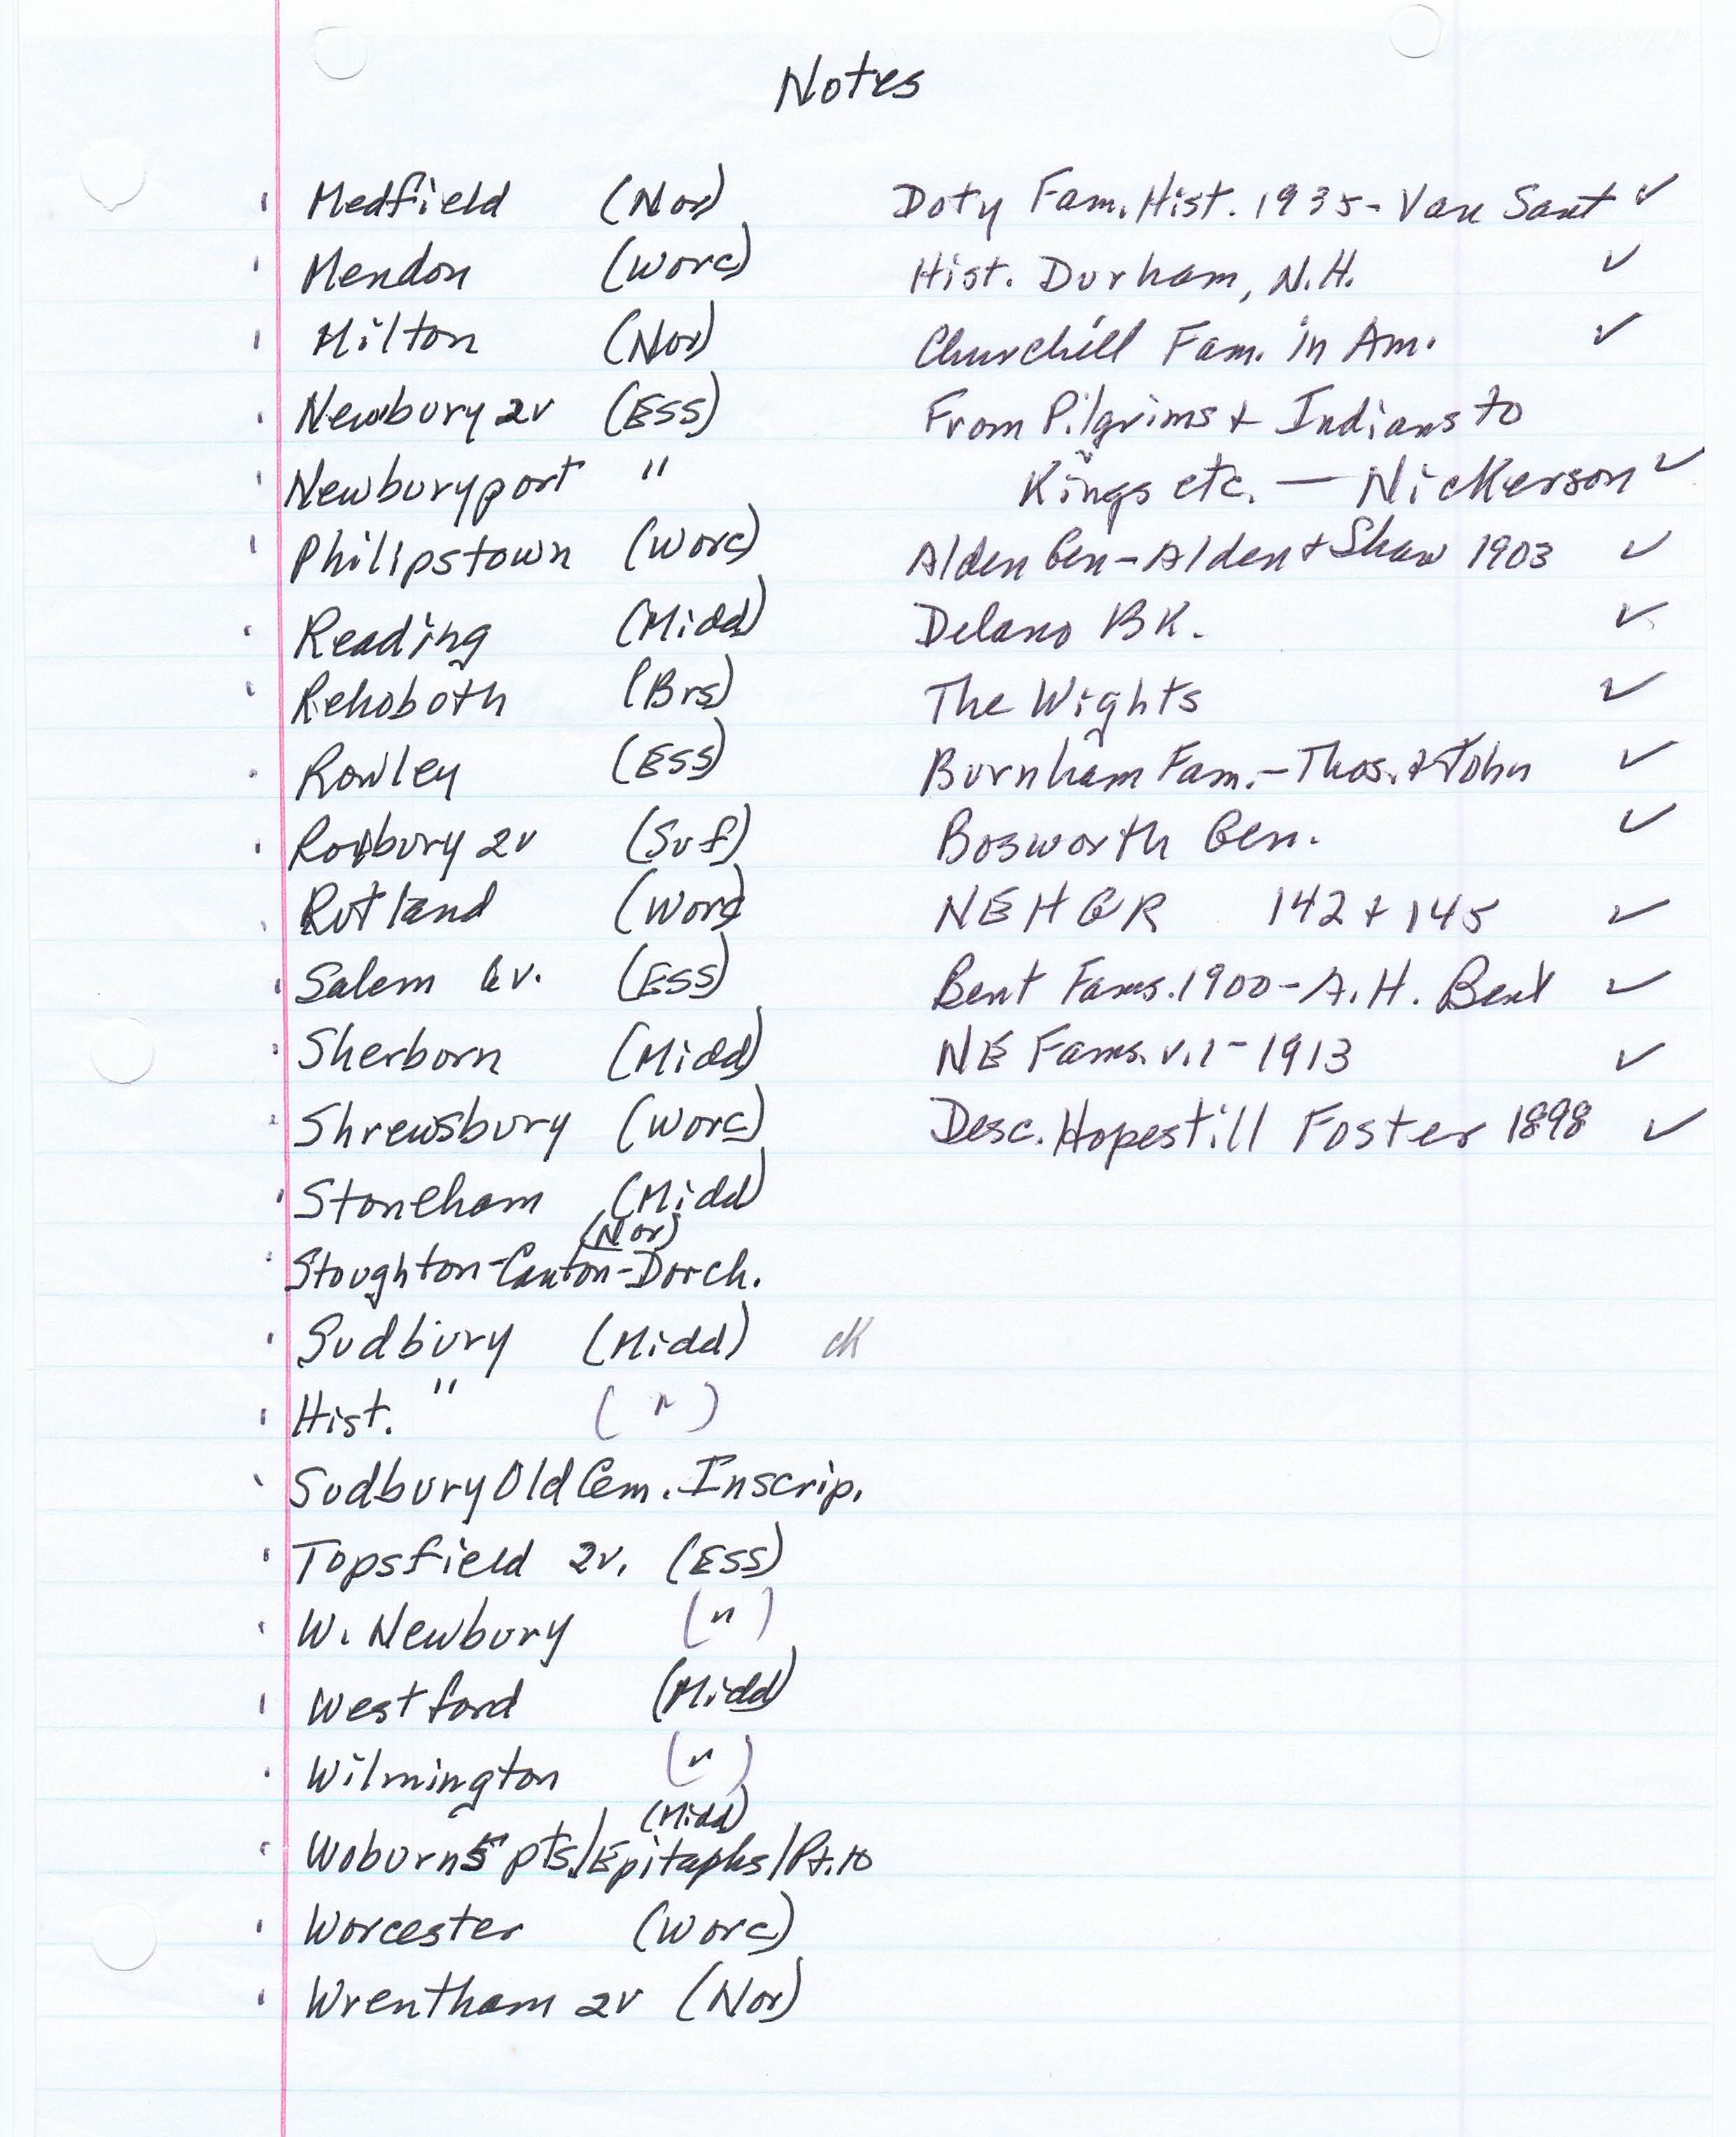 Notes
Medfield (Nor) Doty Fam. Hist. 1935 - Van Sant ✓
Mendon (Worc) Hist. Durham, N.H. ✓
Milton (Nor) Churchill Fam. in Am. ✓
Newbury 2v (Ess) From Pilgrims + Indians to
Newburyport " Kings etc. — Nickerson ✓
Philipstown (Worc) Alden Gen - Alden + Shaw 1903 ✓
Reading (Midd) Delano BK. ✓
Rehoboth (Brs) The Wights ✓
Rowley (Ess) Burnham Fam. - Thos. + John ✓
Roxbury 2v (Suf) Bosworth Gen. ✓
Rutland (Worc) NEHGR 142 + 145 ✓
Salem 6v. (Ess) Bent Fams. 1900 - A.H. Bent ✓
Sherborn (Midd) NE Fams. v.1 - 1913 ✓
Shrewsbury (Worc) Desc. Hopestill Foster 1898 ✓
Stoneham (Midd)
(Nor)
Stoughton-Canton-Dorch.
Sudbury (Midd) ck
Hist. " (")
Sudbury Old Cem. Inscrip.
Topsfield 2v. (Ess)
W. Newbury (")
Westford (Midd)
Wilmington (")
(Midd)
Woburn 5 pts/Epitaphs/Pt.10
Worcester (Worc)
Wrentham 2v (Nor)